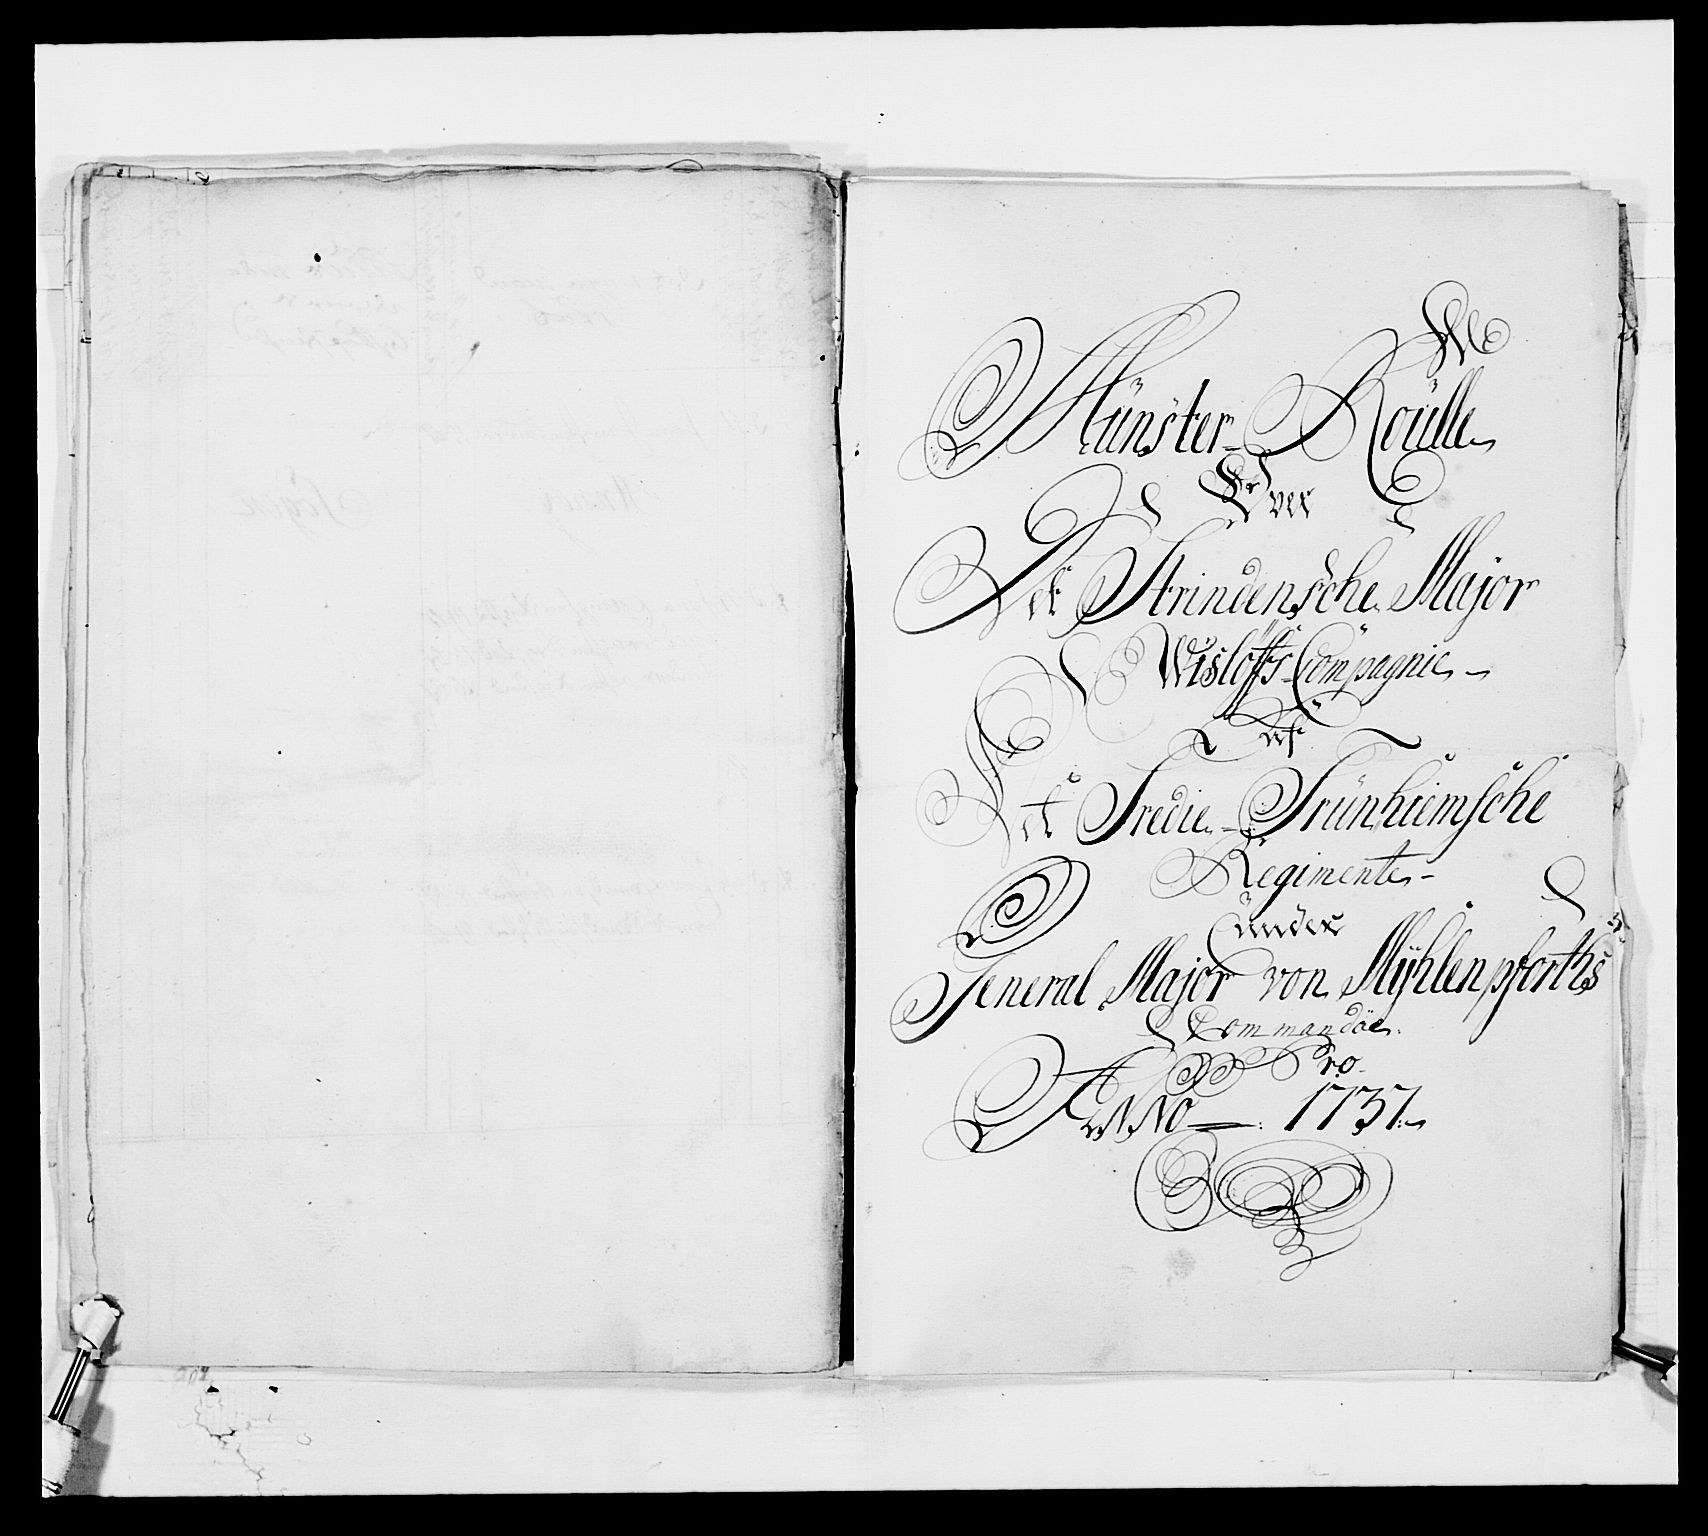 Münster-Roülle
Over
Det Strindensche Major
Wisløffs Compagnie
Af
Det Tredie Trünhiemsche
Regimente
ünder
General Major von Mÿhlenpforths
Commandoe
Pro
ANNO 1737